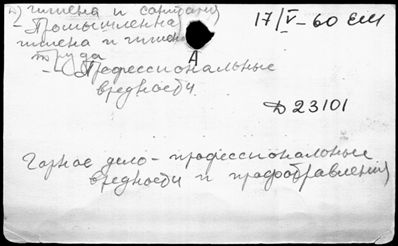 2) гигиена и санитария
- Промышленная
гигиена и гигиена
труда
17/V-60 ЕМ
- Профессиональные
вредности
Д 23101
Горное дело - профессиональные
вредности и профотравления